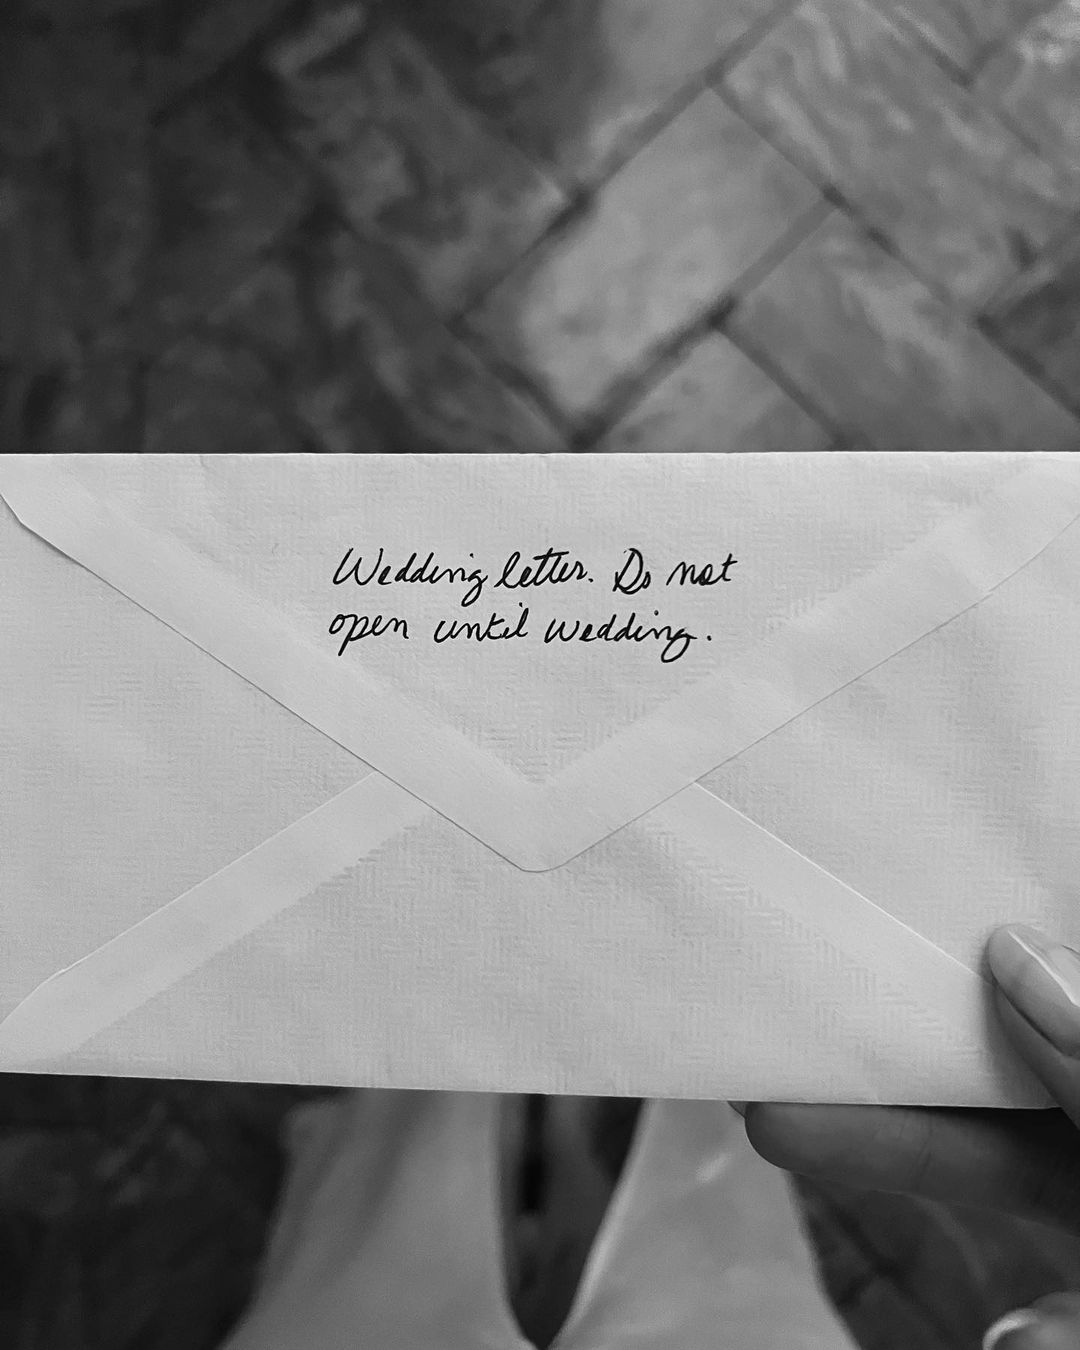 Wedding letter. Do not
open until wedding.